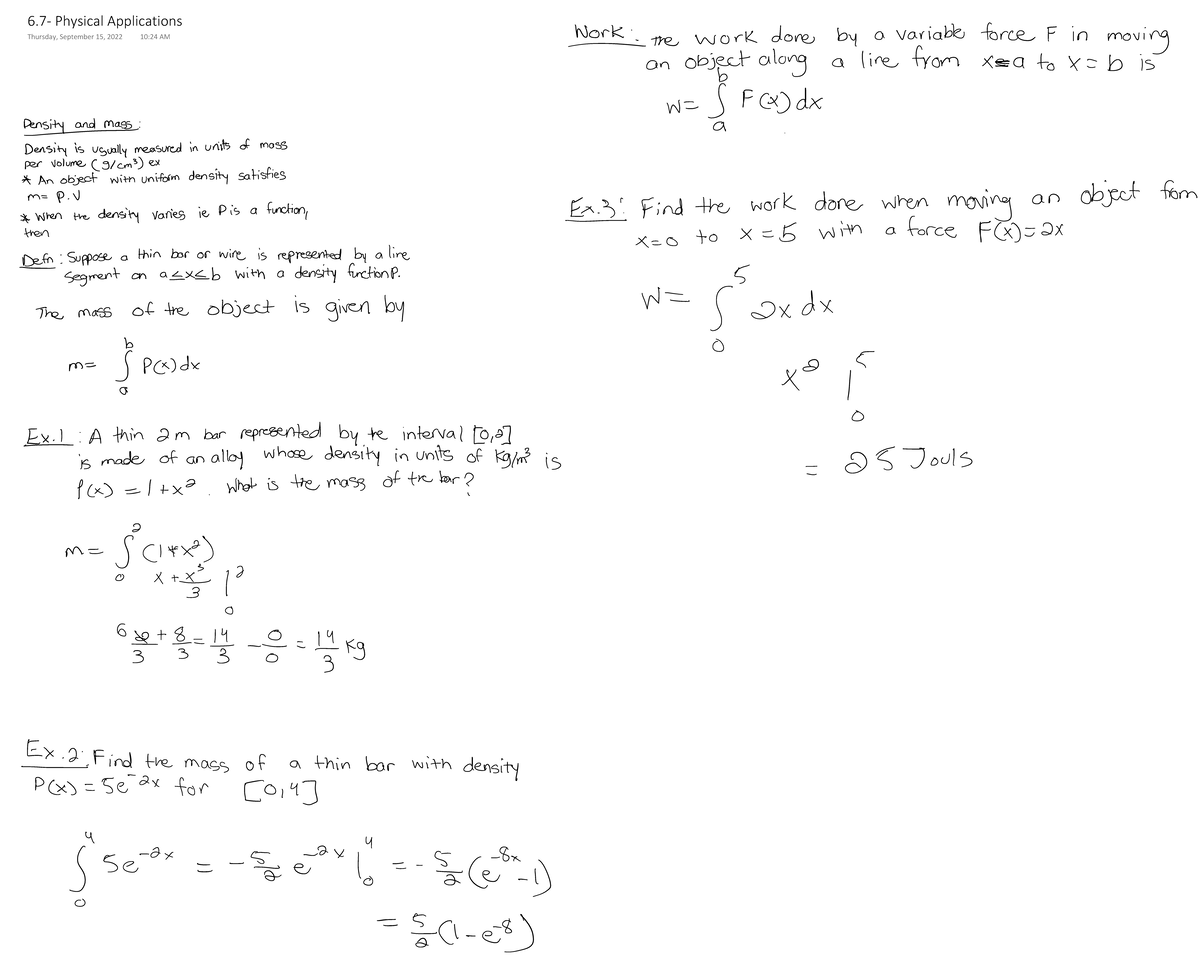 6.7- Physical Applications
Thursday, September 15, 2022 10:24 AM
Density and mass:
Density is usually measured in units of mass
per volume (g/cm³) ex
* An object with uniform density satisfies
m= P.V
* When the density varies ie P is a function,
then
Defn: Suppose a thin bar or wire is represented by a line
segment on a≤x≤b with a density function P.
The mass of the object is given by
m= ∫ₐᵇ P(x)dx
Ex.1: A thin 2m bar represented by te interval [0,2]
is made of an alloy whose density in units of Kg/m³ is
P(x) = 1+x². What is the mass of the bar?
m= ∫₀² (1+x²)
x + x³/3 |₀²
6/3 + 8/3 = 14/3 - 0/0 = 14/3 Kg
Ex.2: Find the mass of a thin bar with density
P(x) = 5e^-2x for [0,4]
∫₀⁴ 5e^-2x = -5/2 e^-2x |₀⁴ = -5/2 (e^-8x -1)
= 5/2 (1-e^-8)
Work: The work done by a variable force F in moving
an object along a line from x=a to x=b is
W= ∫ₐᵇ F(x)dx
Ex.3: Find the work done when moving an object from
x=0 to x=5 with a force F(x)=2x
W= ∫₀⁵ 2x dx
x² |₀⁵
= 25 Jouls